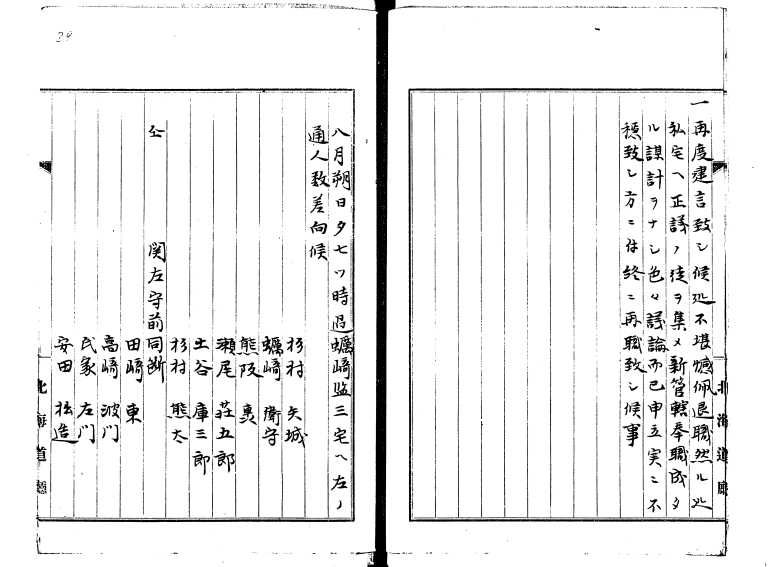 一再度建言致シ候処不堪憾佩退職然ル処
私宅ヘ正議ノ徒ヲ集メ新管轄奉職成タ
ル謀計ヲナシ色々議論而已申立実ニ不
穏致シ方ニ付終ニ再職致シ候事
北海道廳
八月朔日夕七ツ時過蠣崎監三宅ヘ左ノ
通人数差向候
杉村矢城
蠣崎衛守
熊坂
瀬尾荘五郎
土谷庫三郎
杉村熊太
関左守前同断
田崎東
高崎波門
氏家左門
安田拙造
北海道廳